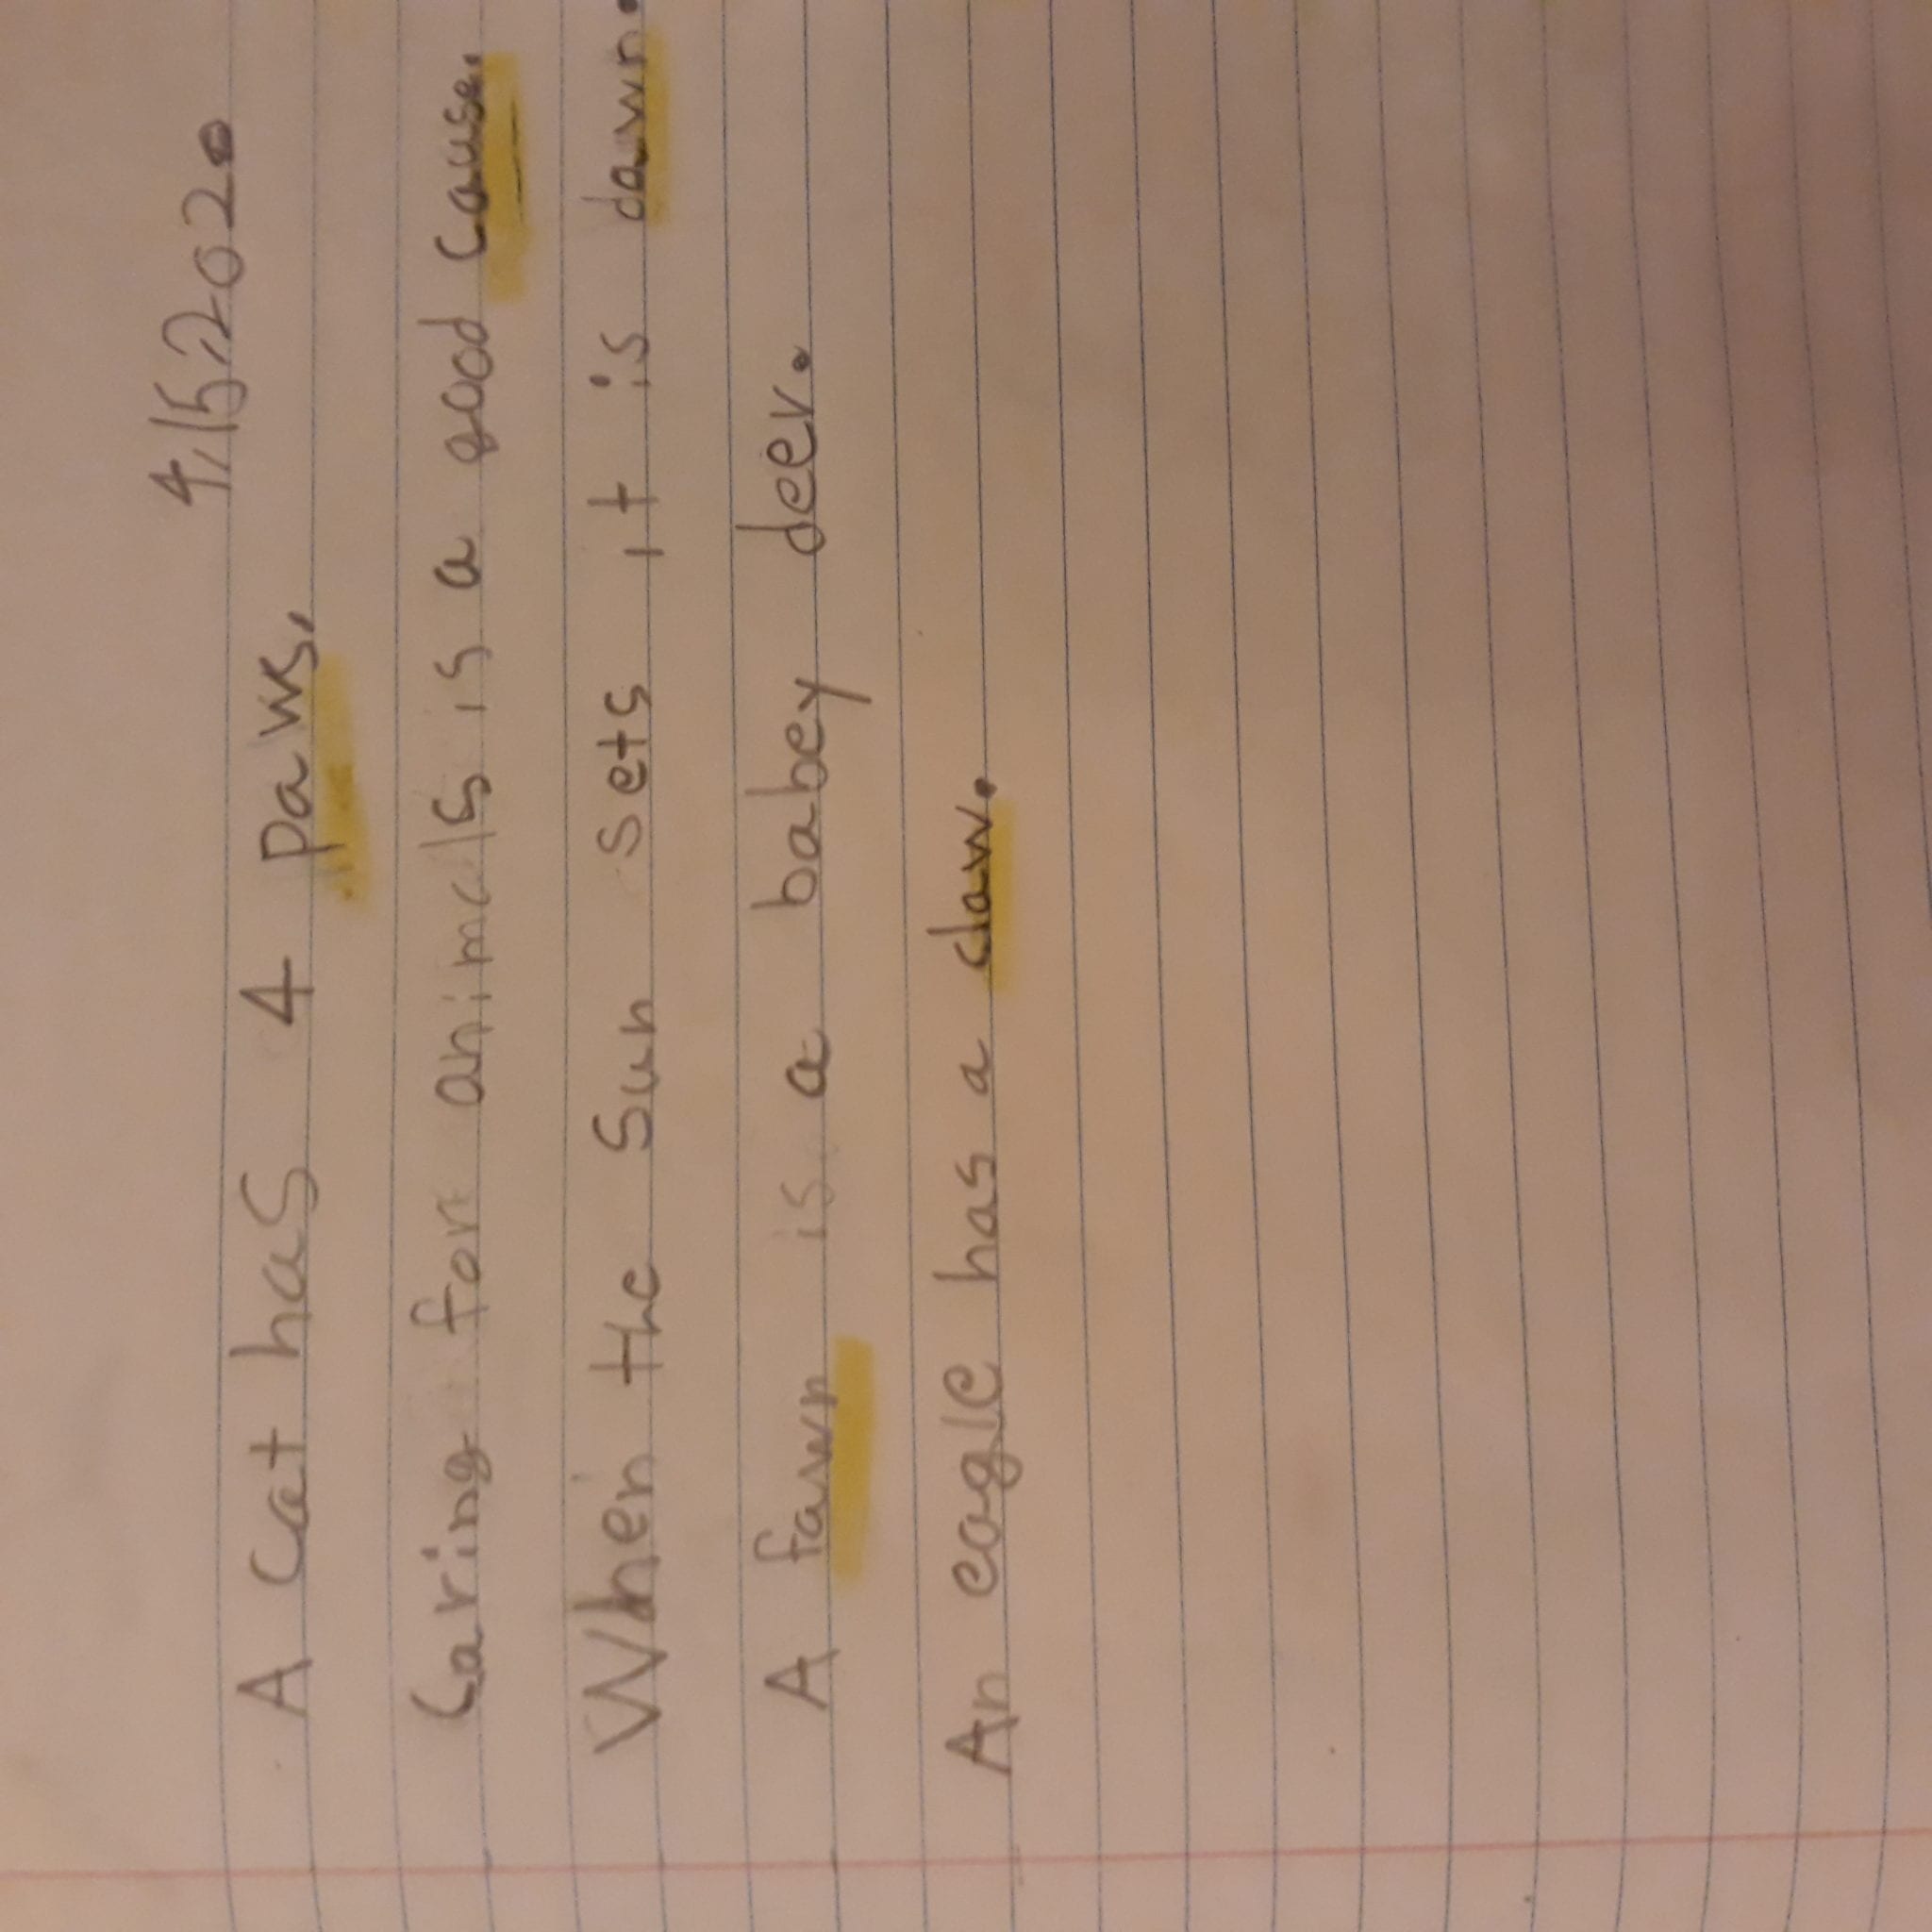 4,15,2020
A cat has 4 paws.
Caring for animals is a good cause.
When the Sun sets it is dawn.
A fawn is a babey deer.
An eagle has a claw.